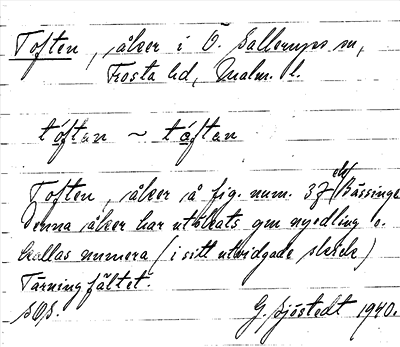 Toften, åker i Ö. Sallerups sn,
Frosta hd, Malm. l.
tọ́ftạn ~ tọ́ftạn
Toften, åker å fig. num. 37 Bässinge
Denna åker har utökats gm nyodling o.
kallas numera (i sitt utvidgade skick)
Tärningfältet.
SOS. G. Sjöstedt 1940.